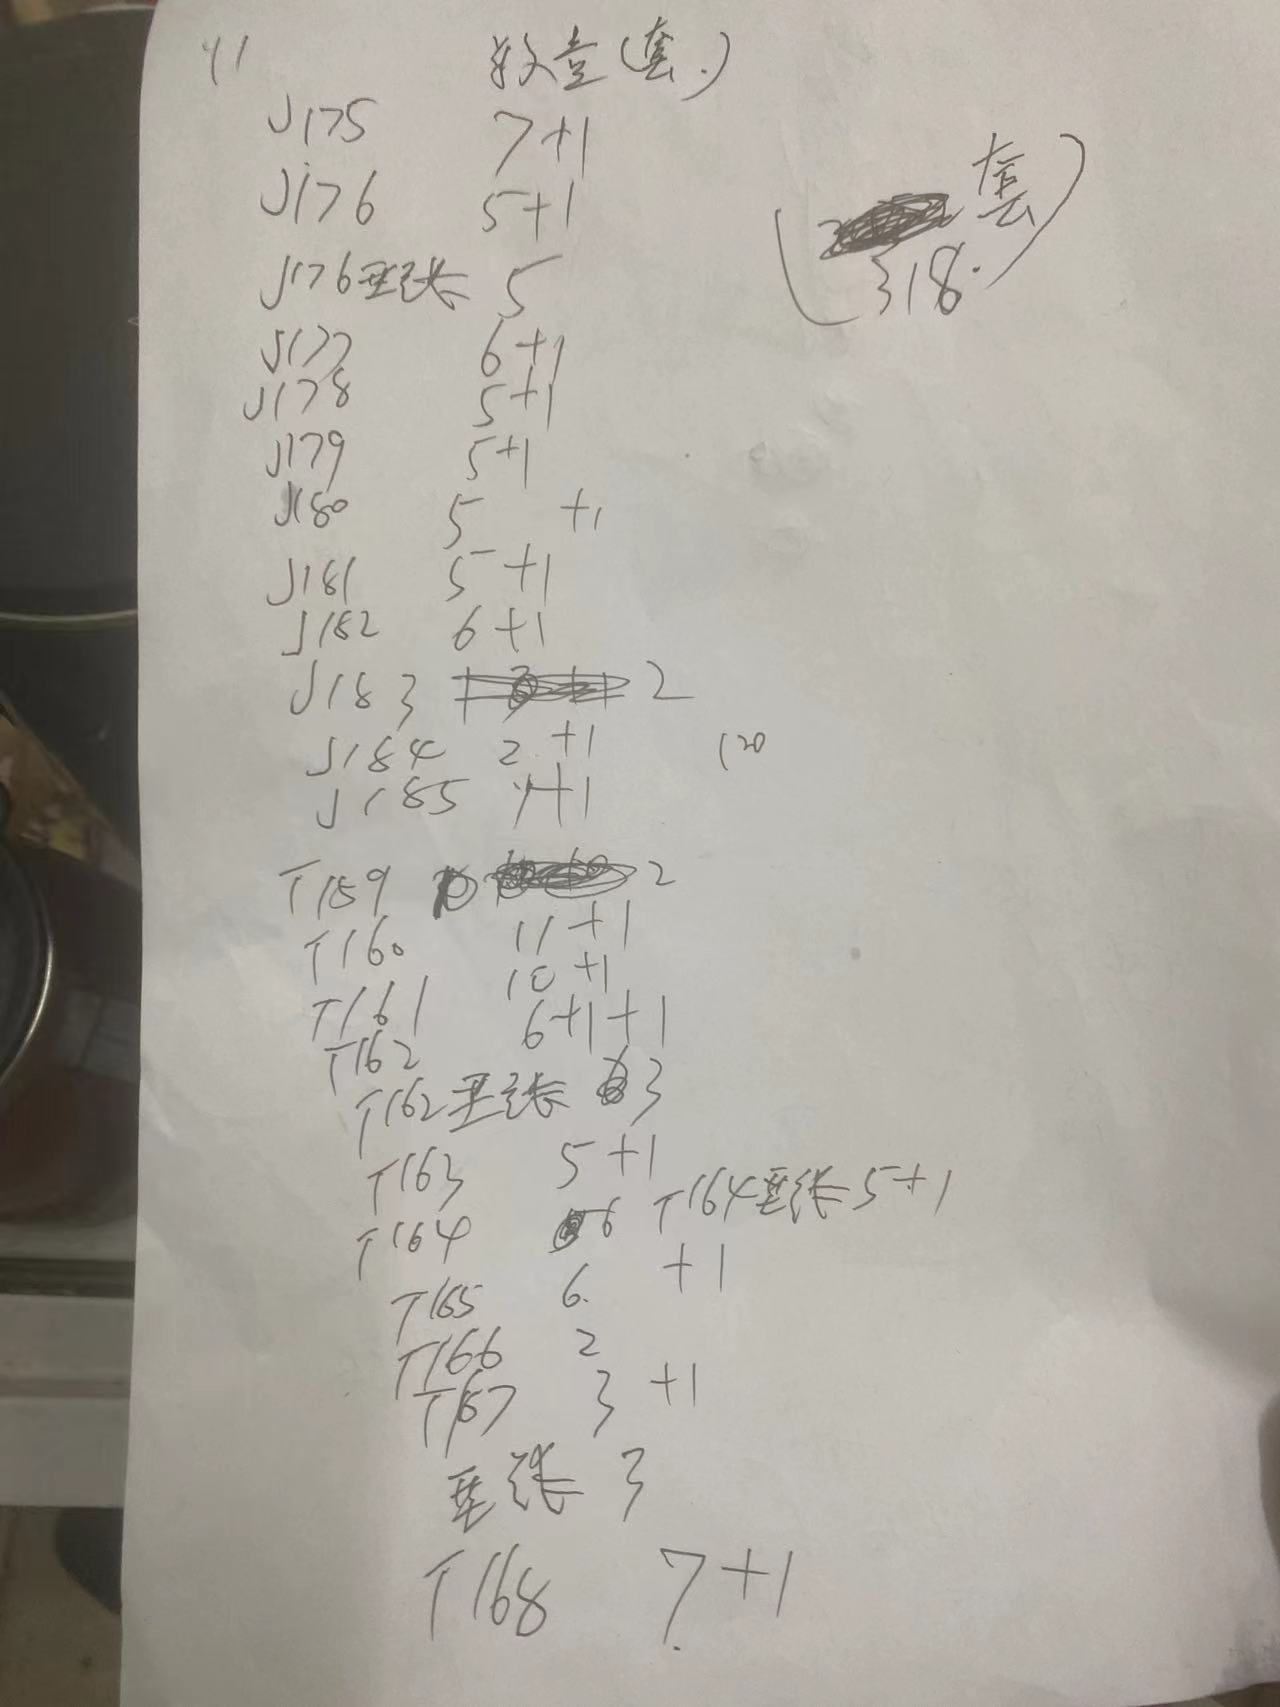 41 数量(套.)
J175 7+1
(套
318.)
J176 5+1
J176整张 5
J177 6+1
J178 5+1
J179 5+1
J180 5 +1
J181 5+1
J182 6+1
J183 2
J184 2 +1 120
J185 4+1
T159 2
T160 11+1
T161 10+1
T162 6+1+1
T162整张 3
T163 5+1
T164 6 T164整张5+1
T165 6. +1
T166 2
T167 3 +1
整张 3
T168 7+1